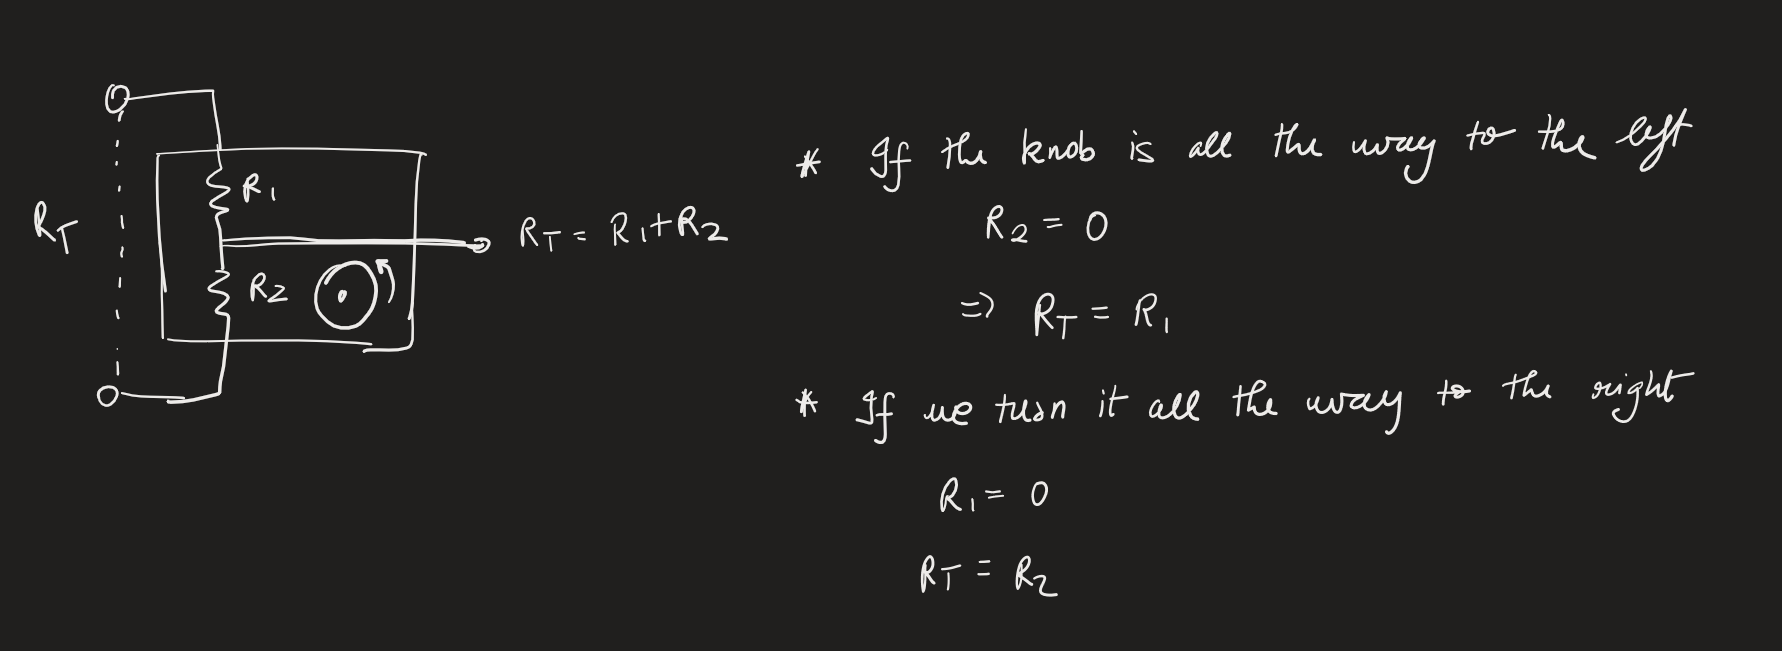 R_T
R_1
R_T = R_1 + R_2
R_2
* If the knob is all the way to the left
R_2 = 0
=> R_T = R_1
* If we turn it all the way to the right
R_1 = 0
R_T = R_2